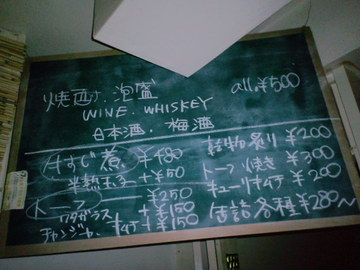 焼酎、泡盛
WINE. WHISKEY
日本酒、梅酒
all.¥500
牛すじ煮 ¥480
半熟玉子 + ¥50
トーフ ¥250
ワタガラス + ¥150
チャンジャ + ¥150
乾物炙り ¥200
トーフ焼き ¥300
キューリキムチ ¥200
缶詰各種 ¥280~